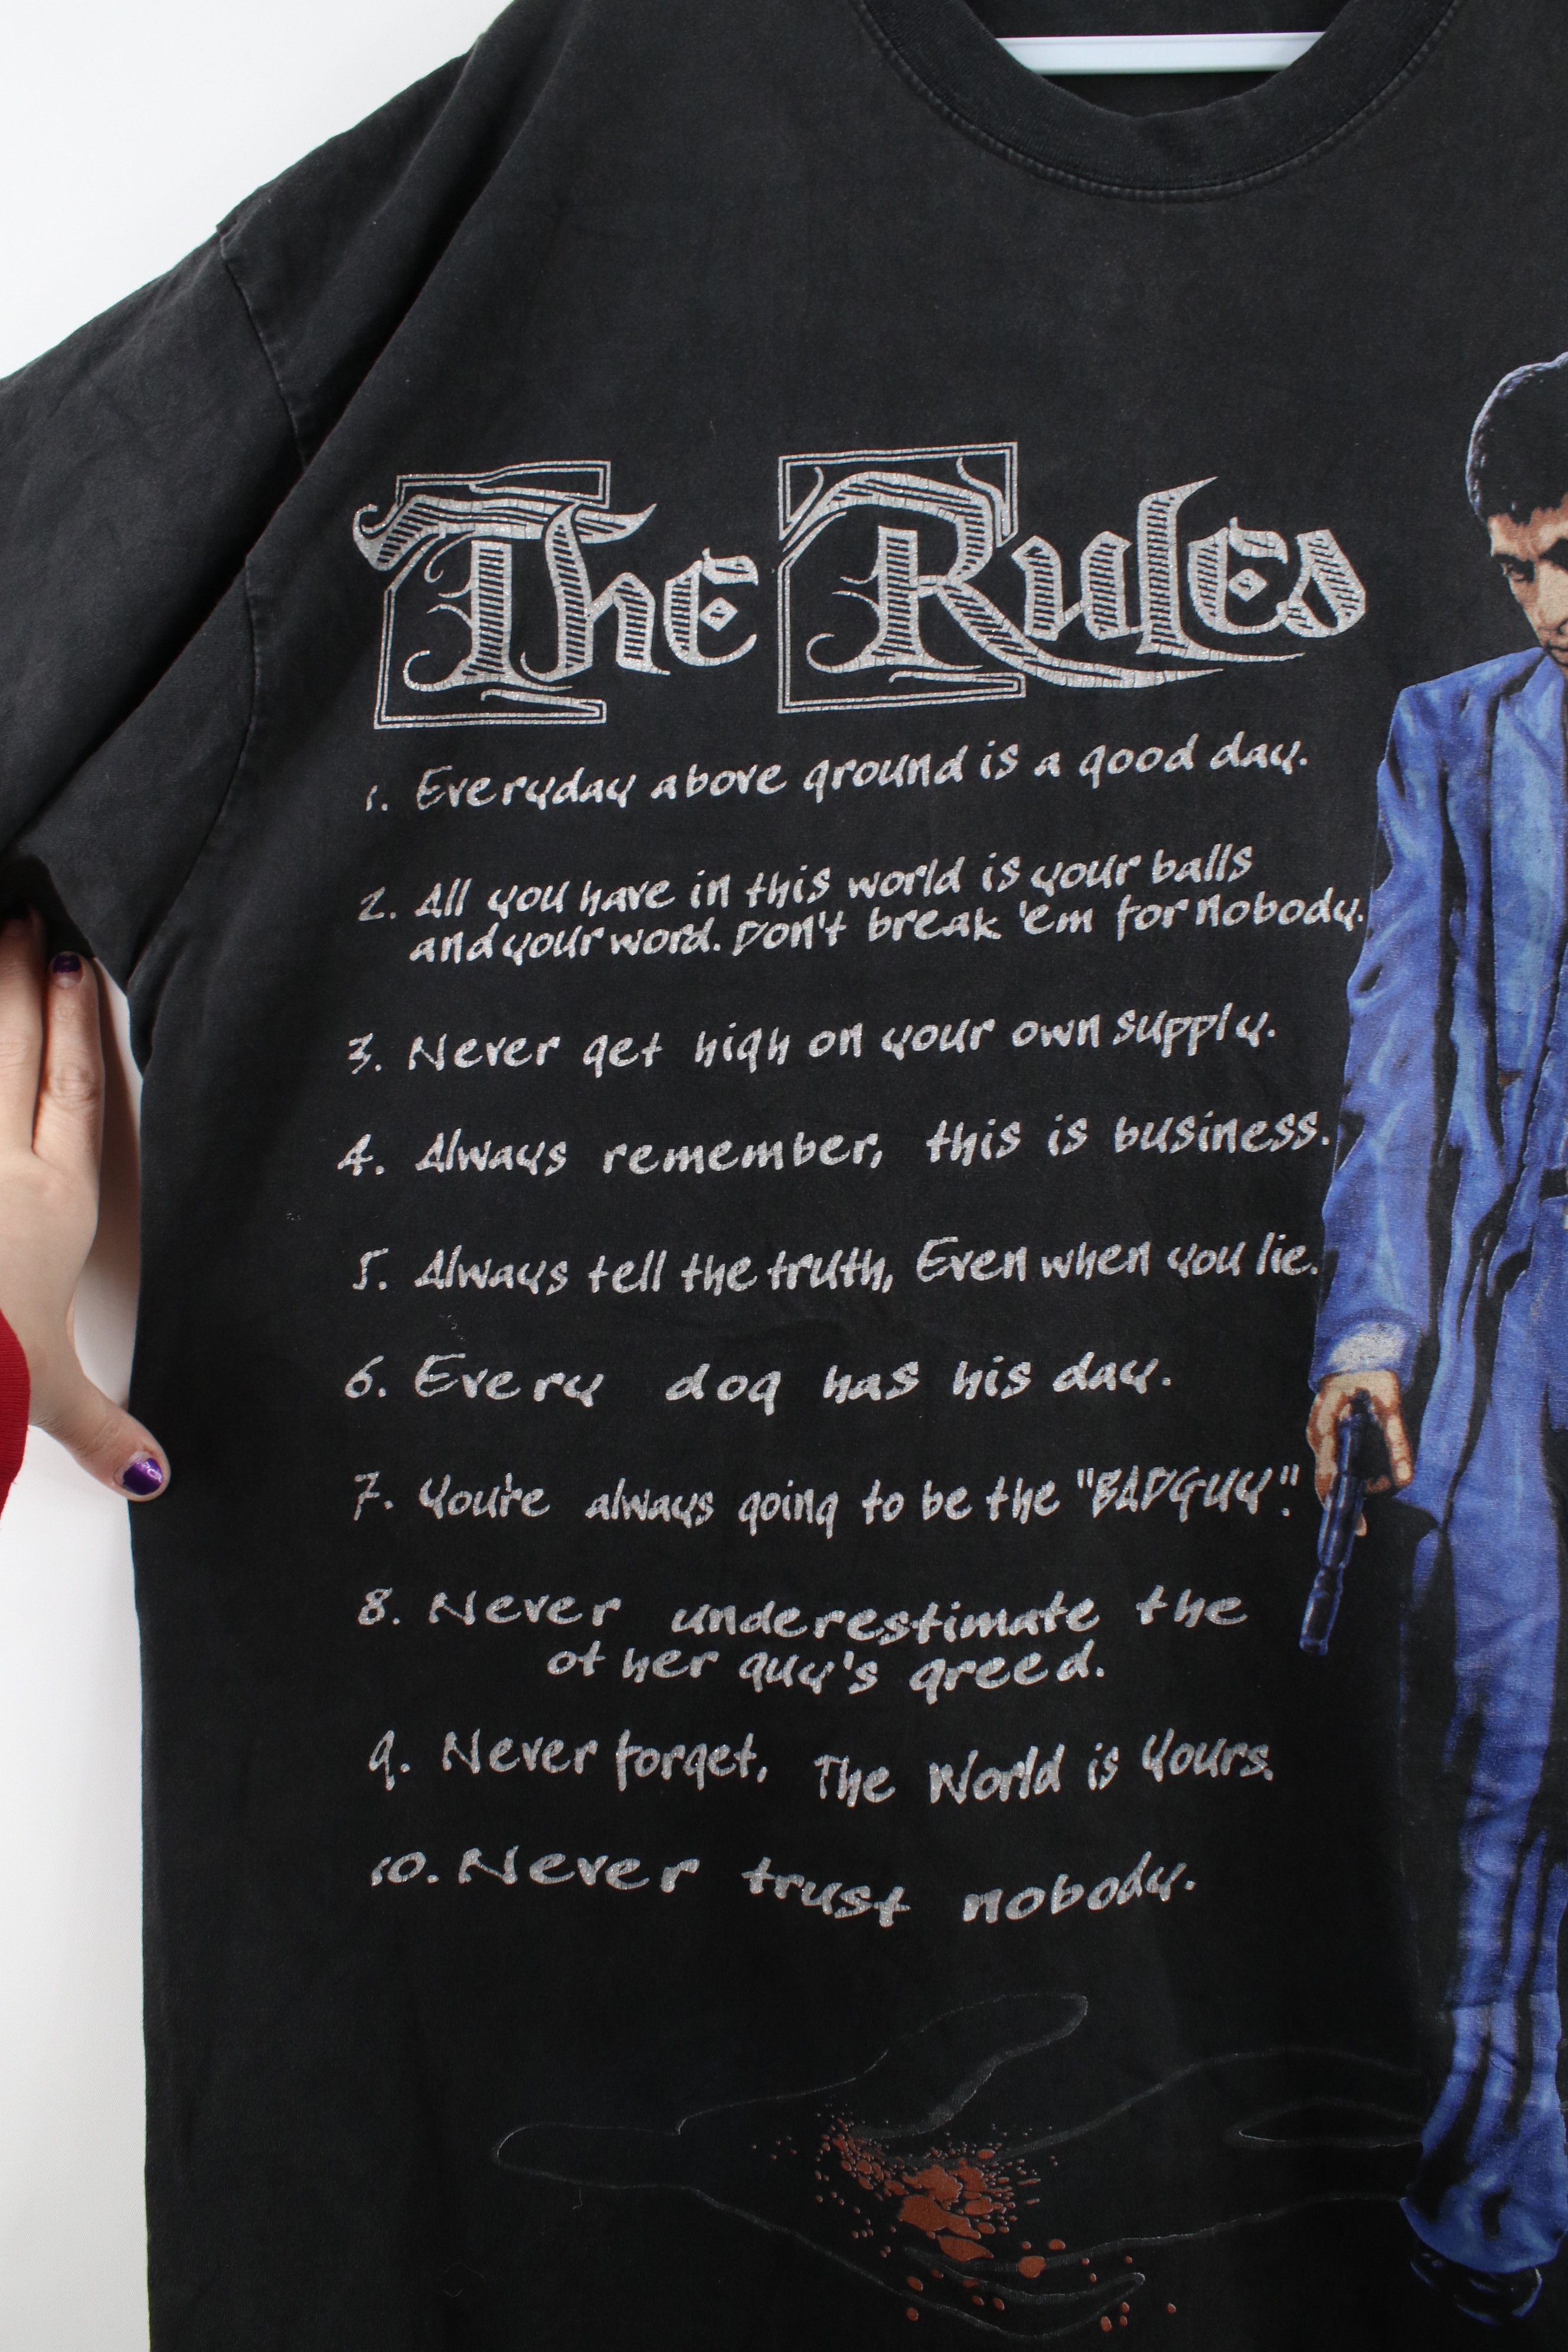 The Rules
1. Everyday above ground is a good day.
2. All you have in this world is your balls
and your word. Don't break 'em for nobody.
3. Never get high on your own supply.
4. Always remember, this is business.
5. Always tell the truth, Even when you lie.
6. Every dog has his day.
7. You're always going to be the "BADGUY".
8. Never underestimate the
other guy's greed.
9. Never forget, The World is Yours.
10. Never trust nobody.